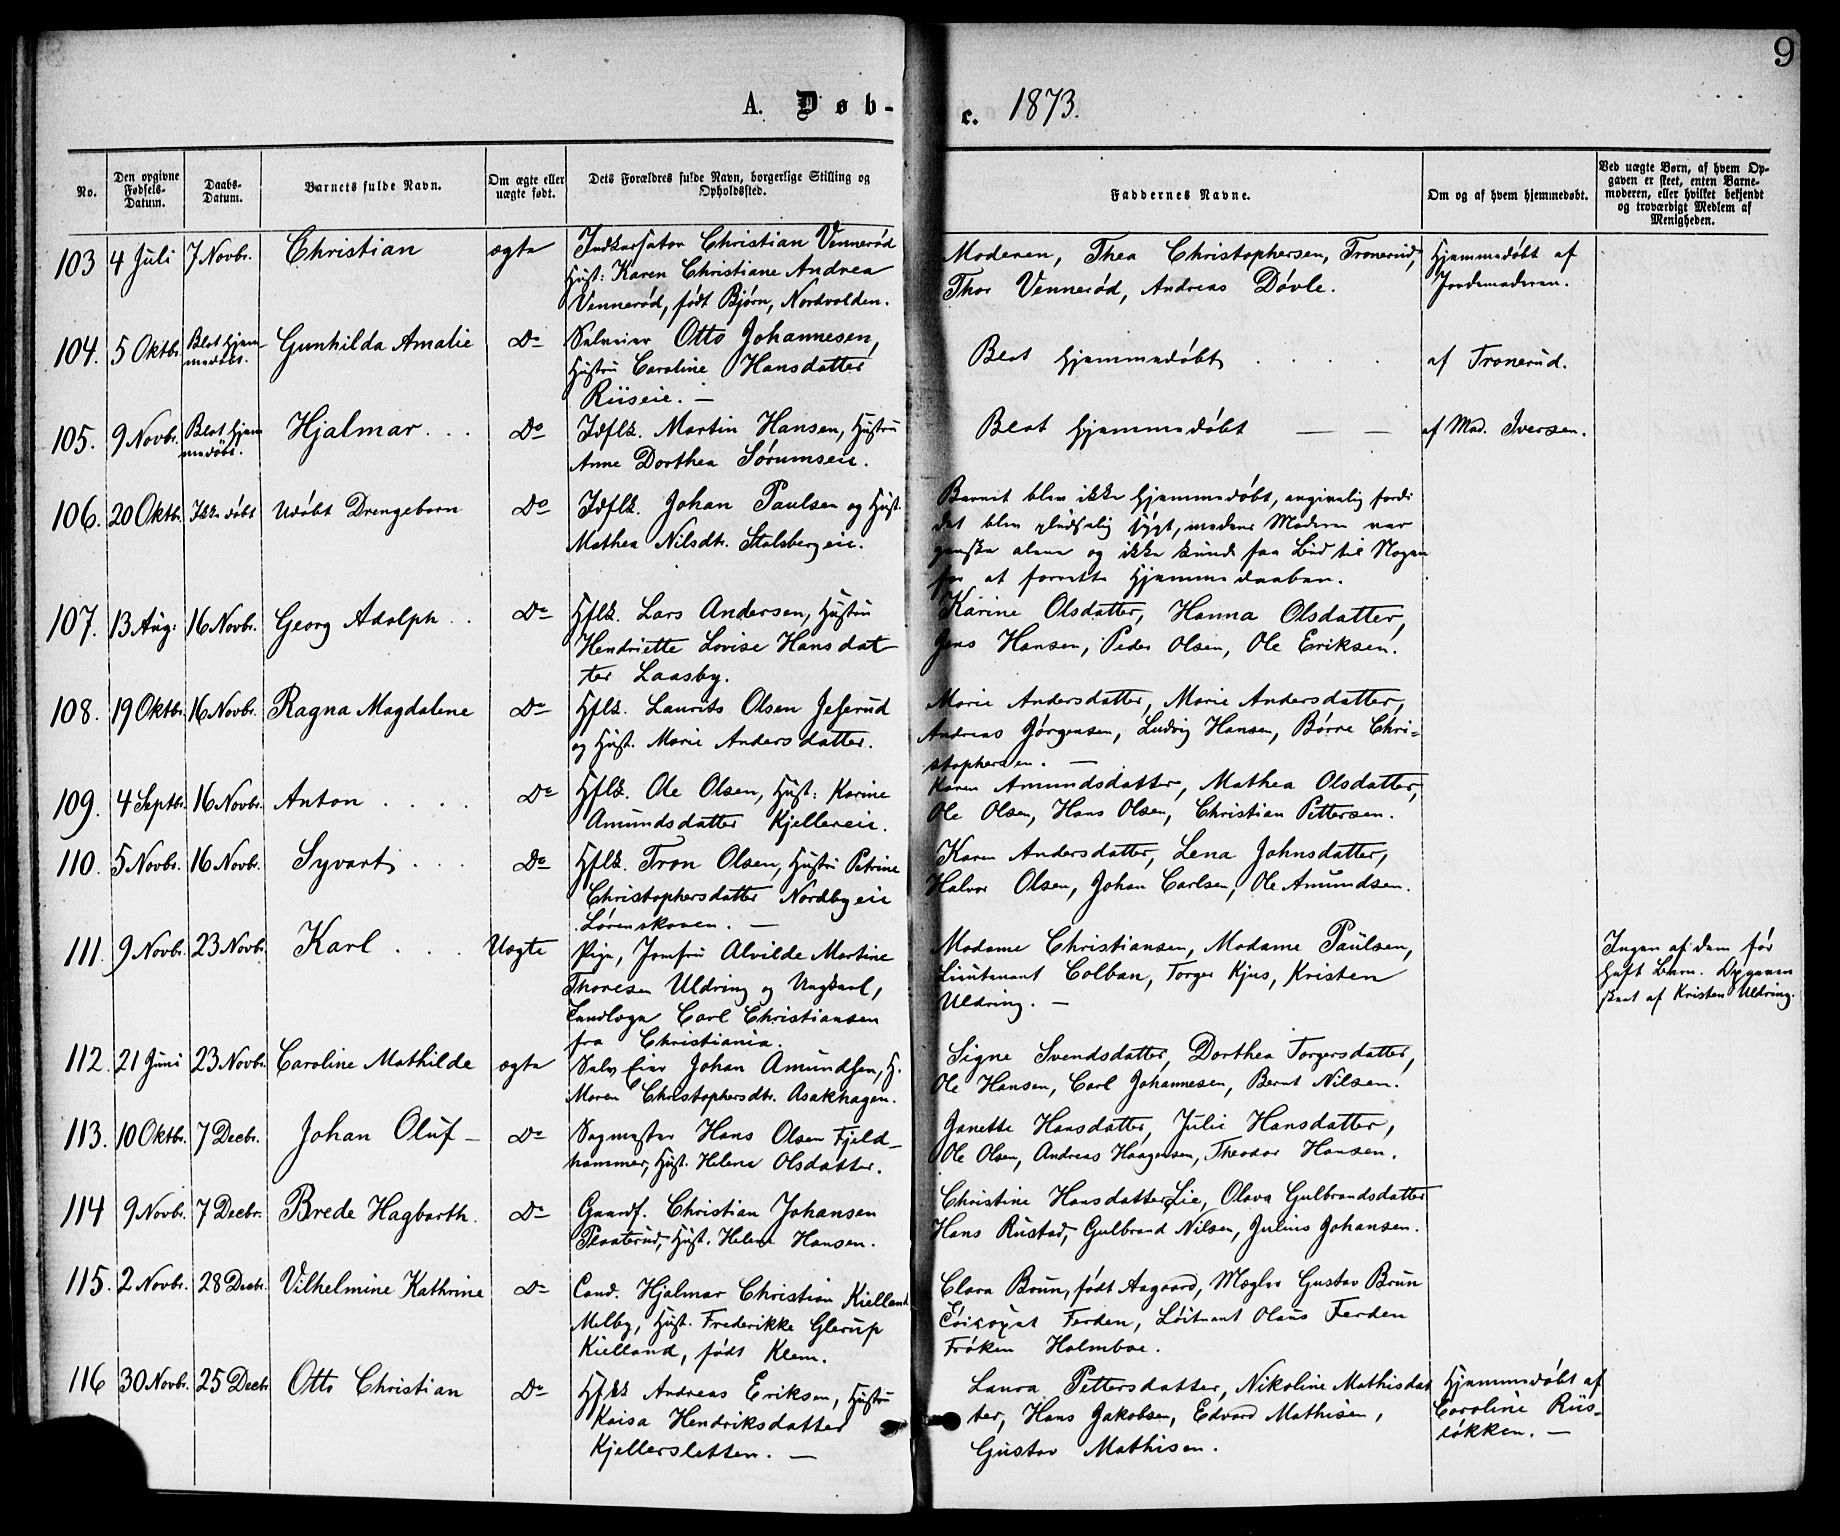 9
A. Døb-
c. 1873.
No.
Den opgivne Fødsels-Datum.
Daabs-Datum.
Barnets fulde Navn.
Om ægte eller uægte født.
Dets Forældres fulde Navn, borgerlige Stilling og Opholdssted.
Faddernes Navne.
Om og af hvem hjemmedøbt.
Ved uægte Børn, af hvem Opgaven er skeet, enten Barnemoderen, eller hvilket bekjendt og troværdigt Medlem af Menigheden.
103 4 Juli 7 Novbr. Christian ægte Indkassator Christian Vennerød
Hust: Karen Christiane Andrea
Vennerød, født Bjørn, Nordvolden.
Moderen, Thea Christophersen, Tronerud,
Thor Vennerød, Andreas Døvle.
Hjemmedøbt af
Jordemoderen.
104. 5 Oktbr. Blot hjem-
medøbt.
Gunhilda Amalie Do Selveier Otto Johannesen,
Hustru Caroline Hansdatter
Riiseie. —
Blot hjemmedøbt . . .
af Tronerud.
105. 9 Novbr. Blot hjem
medøbt.
Hjalmar . . . Do Idflk. Martin Hansen, Hustru
Anne Dorthea Sørumseie.
Blot hjemmedøbt — —
af Mad. Iversen.
106. 20 Oktbr. Ikke døbt Udøbt Drengebarn Do Idflk. Johan Paulsen og Hust.
Mathea Nilsdtr. Stalsbergeie.
Barnet blev ikke hjemmedøbt, angivelig fordi
det blev pludselig sygt, medens Moderen var
ganske alene og ikke kunde faa Bud til Nogen
for at forrette Hjemmedaaben.
107. 13 Aug: 16 Novbr. Georg Adolph . . Do Hflk. Lars Andersen, Hustru
Henriette Lovise Hansdat
ter Laasby.
Karine Olsdatter, Hanna Olsdatter,
Jens Hansen, Peder Olsen, Ole Eriksen.
108. 19 Oktbr. 16 Novbr. Ragna Magdalene Do Hflk. Laurits Olsen Jeserud
og Hust. Marie Andersdatter.
Marie Andersdatter, Marie Andersdatter,
Andreas Jørgensen, Ludvig Hansen, Børre Chri-
stophersen. —
109. 4 Septbr. 16 Novbr. Anton . . . . Do Hflk. Ole Olsen, Hust: Karine
Amundsdatter Kjellereie.
Karen Amundsdatter, Mathea Olsdatter,
Ole Olsen, Hans Olsen, Christian Pettersen.
110. 5 Novbr. 16 Novbr. Syvert . . . Do Hflk. Tron Olsen, Hustru Petrine
Christophersdatter Nordbyeie
Lørenskoven. —
Karen Andersdatter, Lena Johnsdatter,
Halvor Olsen, Johan Carlsen, Ole Amundsen.
111. 9 Novbr. 23 Novbr. Karl . . . Uægte Pige, Jomfru Alvilde Martine
Thoresen Uldring og Ungkarl,
Carl Christiansen
fra Christiania.
Madame Christiansen, Madame Paulsen,
Lieutenant Colban, Torger Kjus, Kristen
Uldring. —
Ingen af dem før
haft Barn. Opgaven
skeet af Kristen Uldring.
112. 21 Juni 23 Novbr. Caroline Mathilde ægte Selveier Johan Amundsen, H.
Maren Christophersdtr. Asakhagen.
Signe Svendsdatter, Dorthea Torgersdatter,
Ole Hansen, Carl Johannesen, Bernt Nilsen.
113. 10 Oktbr. 7 Decbr. Johan Oluf — Do Sagmester Hans Olsen Fjeld-
hammer, Hust. Helene Olsdatter.
Janette Hansdatter, Julie Hansdatter,
Ole Olsen, Andreas Haagensen, Theodor Hansen.
114 9 Novbr. 7 Decbr. Brede Hagbarth. Do Gaardf. Christian Johansen
Plaaterud, Hust. Helene Hansen.
Christine Hansdatter Lie, Olava Gulbrandsdatter
Hans Rustad, Gulbrand Nilsen, Julius Johansen.
115. 2 Novbr. 28 Decbr. Vilhelmine Kathrine Do Cand. Hjalmar Christian Kielland
Melby, Hust. Frederikke Glerup
Kielland, født Klem.
Clara Brun, født Aagaard, Mægler Gustav Brun
Ferden, Løitnant Olaus Ferden
Frøken Holmboe.
116 30 Novbr. 25 Decbr. Otto Christian Do Hflk Andreas Eriksen, Hustru
Kaisa Hendriksdatter
Kjellersletten. —
Laura Pettersdatter, Nikoline Mathisdat
ter, Hans Jakobsen, Edvard Mathisen,
Gustav Mathisen.
Hjemmedøbt af
Caroline Riis-
løkken. —